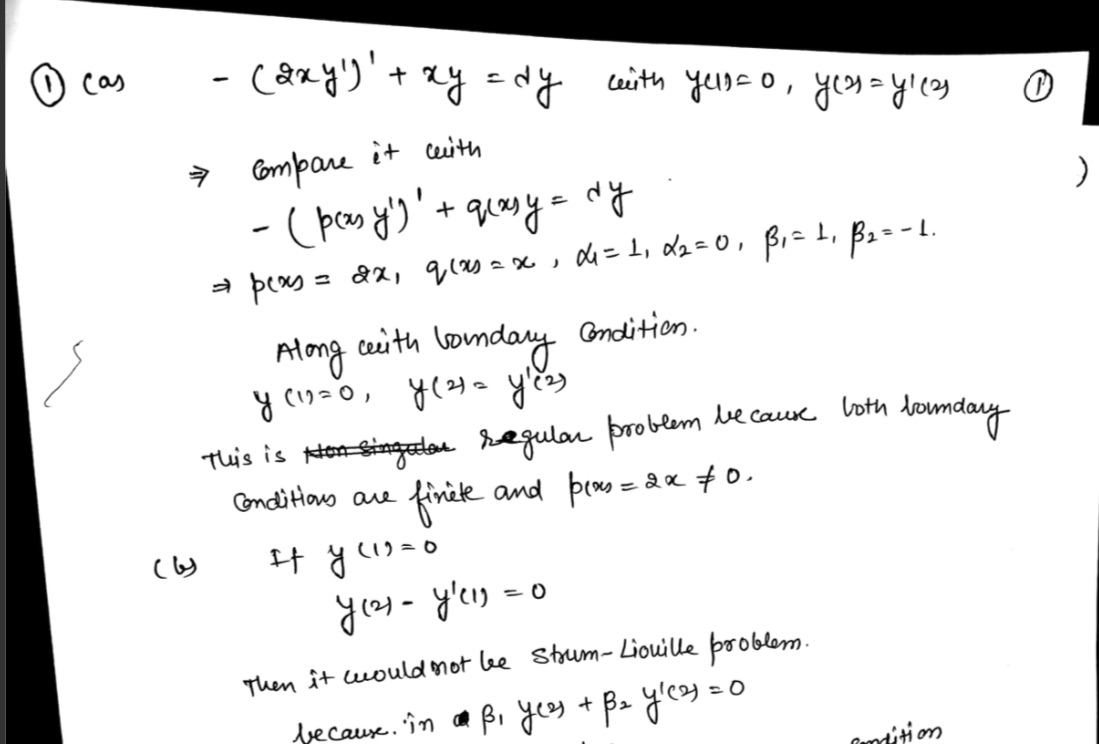 ① (a) - (2xy')' + xy = λy with y(1) = 0, y(2) = y'(2) ①
⇒ Compare it with )
- (p(x) y')' + q(x) y = λy
⇒ p(x) = 2x, q(x) = x, α₁ = 1, α₂ = 0, β₁ = 1, β₂ = -1.
Along with boundary Condition.
y(1) = 0, y(2) = y'(2)
This is Non Singular regular problem because both boundary
Conditions are finite and p(x) = 2x ≠ 0.
(b) If y(1) = 0
y(2) - y'(1) = 0
Then it would not be Strum-Liouille problem.
because. in β₁ y(2) + β₂ y'(2) = 0
condition